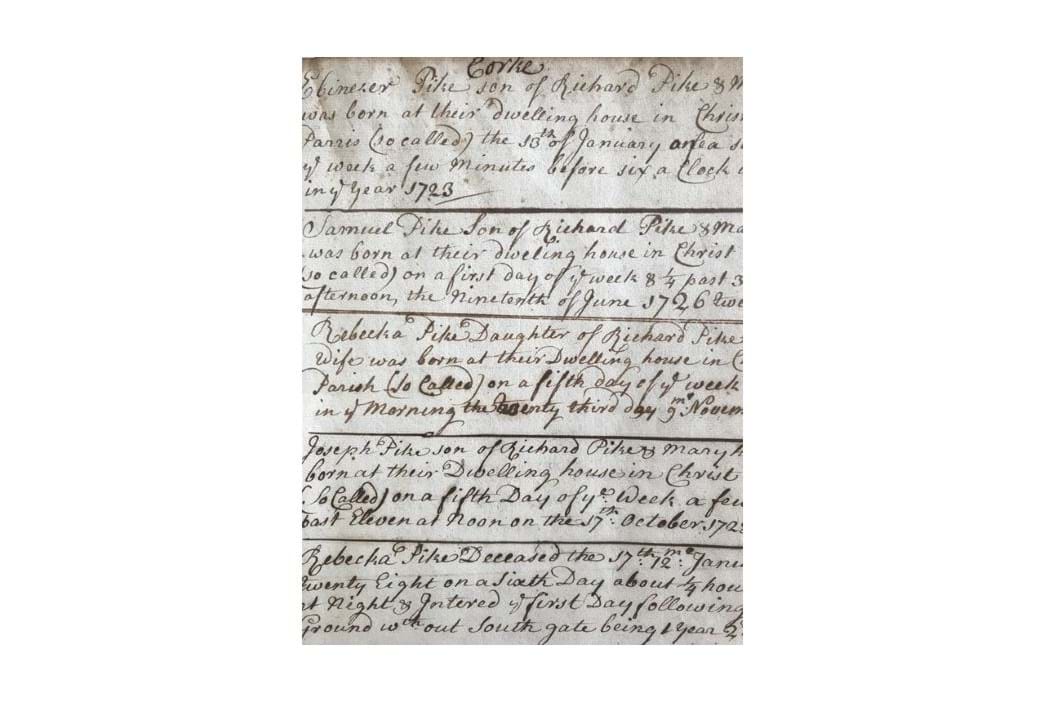 Corke
Ebinezer Pike son of Richard Pike & M
was born at their dwelling house in Chris
Parris (so called) the 13th of January on a s
ye week a few Minutes before six a Clock
in ye Year 1723
Samuel Pike Son of Richard Pike & Ma
was born at their dweling house in Christ
(so called) on a first day of ye week & 1/4 past 3
afternoon, the Nineteenth of June 1726 twe
Rebecka Pike Daughter of Richard Pike
Wife was born at their Dwelling house in C
Parish (So Called) on a fifth day of ye week
in ye Morning the twenty third day 9mo Novem
Joseph Pike son of Richard Pike & Mary h
born at their Dwelling house in Christ
(So Called) on a fifth Day of ye Week a few
Past Eleven at Noon on the 17th October 172
Rebecka Pike Deceased the 17th: 12mo: Janu
twenty Eight on a Sixth Day about 1/4 hou
at Night & Intered ye first Day following
Ground wth out South gate being 1 Year 2